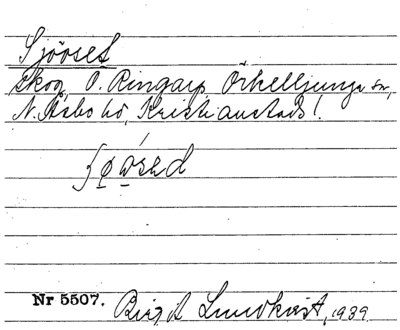 Sjöoset
skog, O. Ringarp, Örkelljunga sn,
N. Åsbo hd, Kristianstads l.
Nr 5507. Birgit Lundkvist, 1939